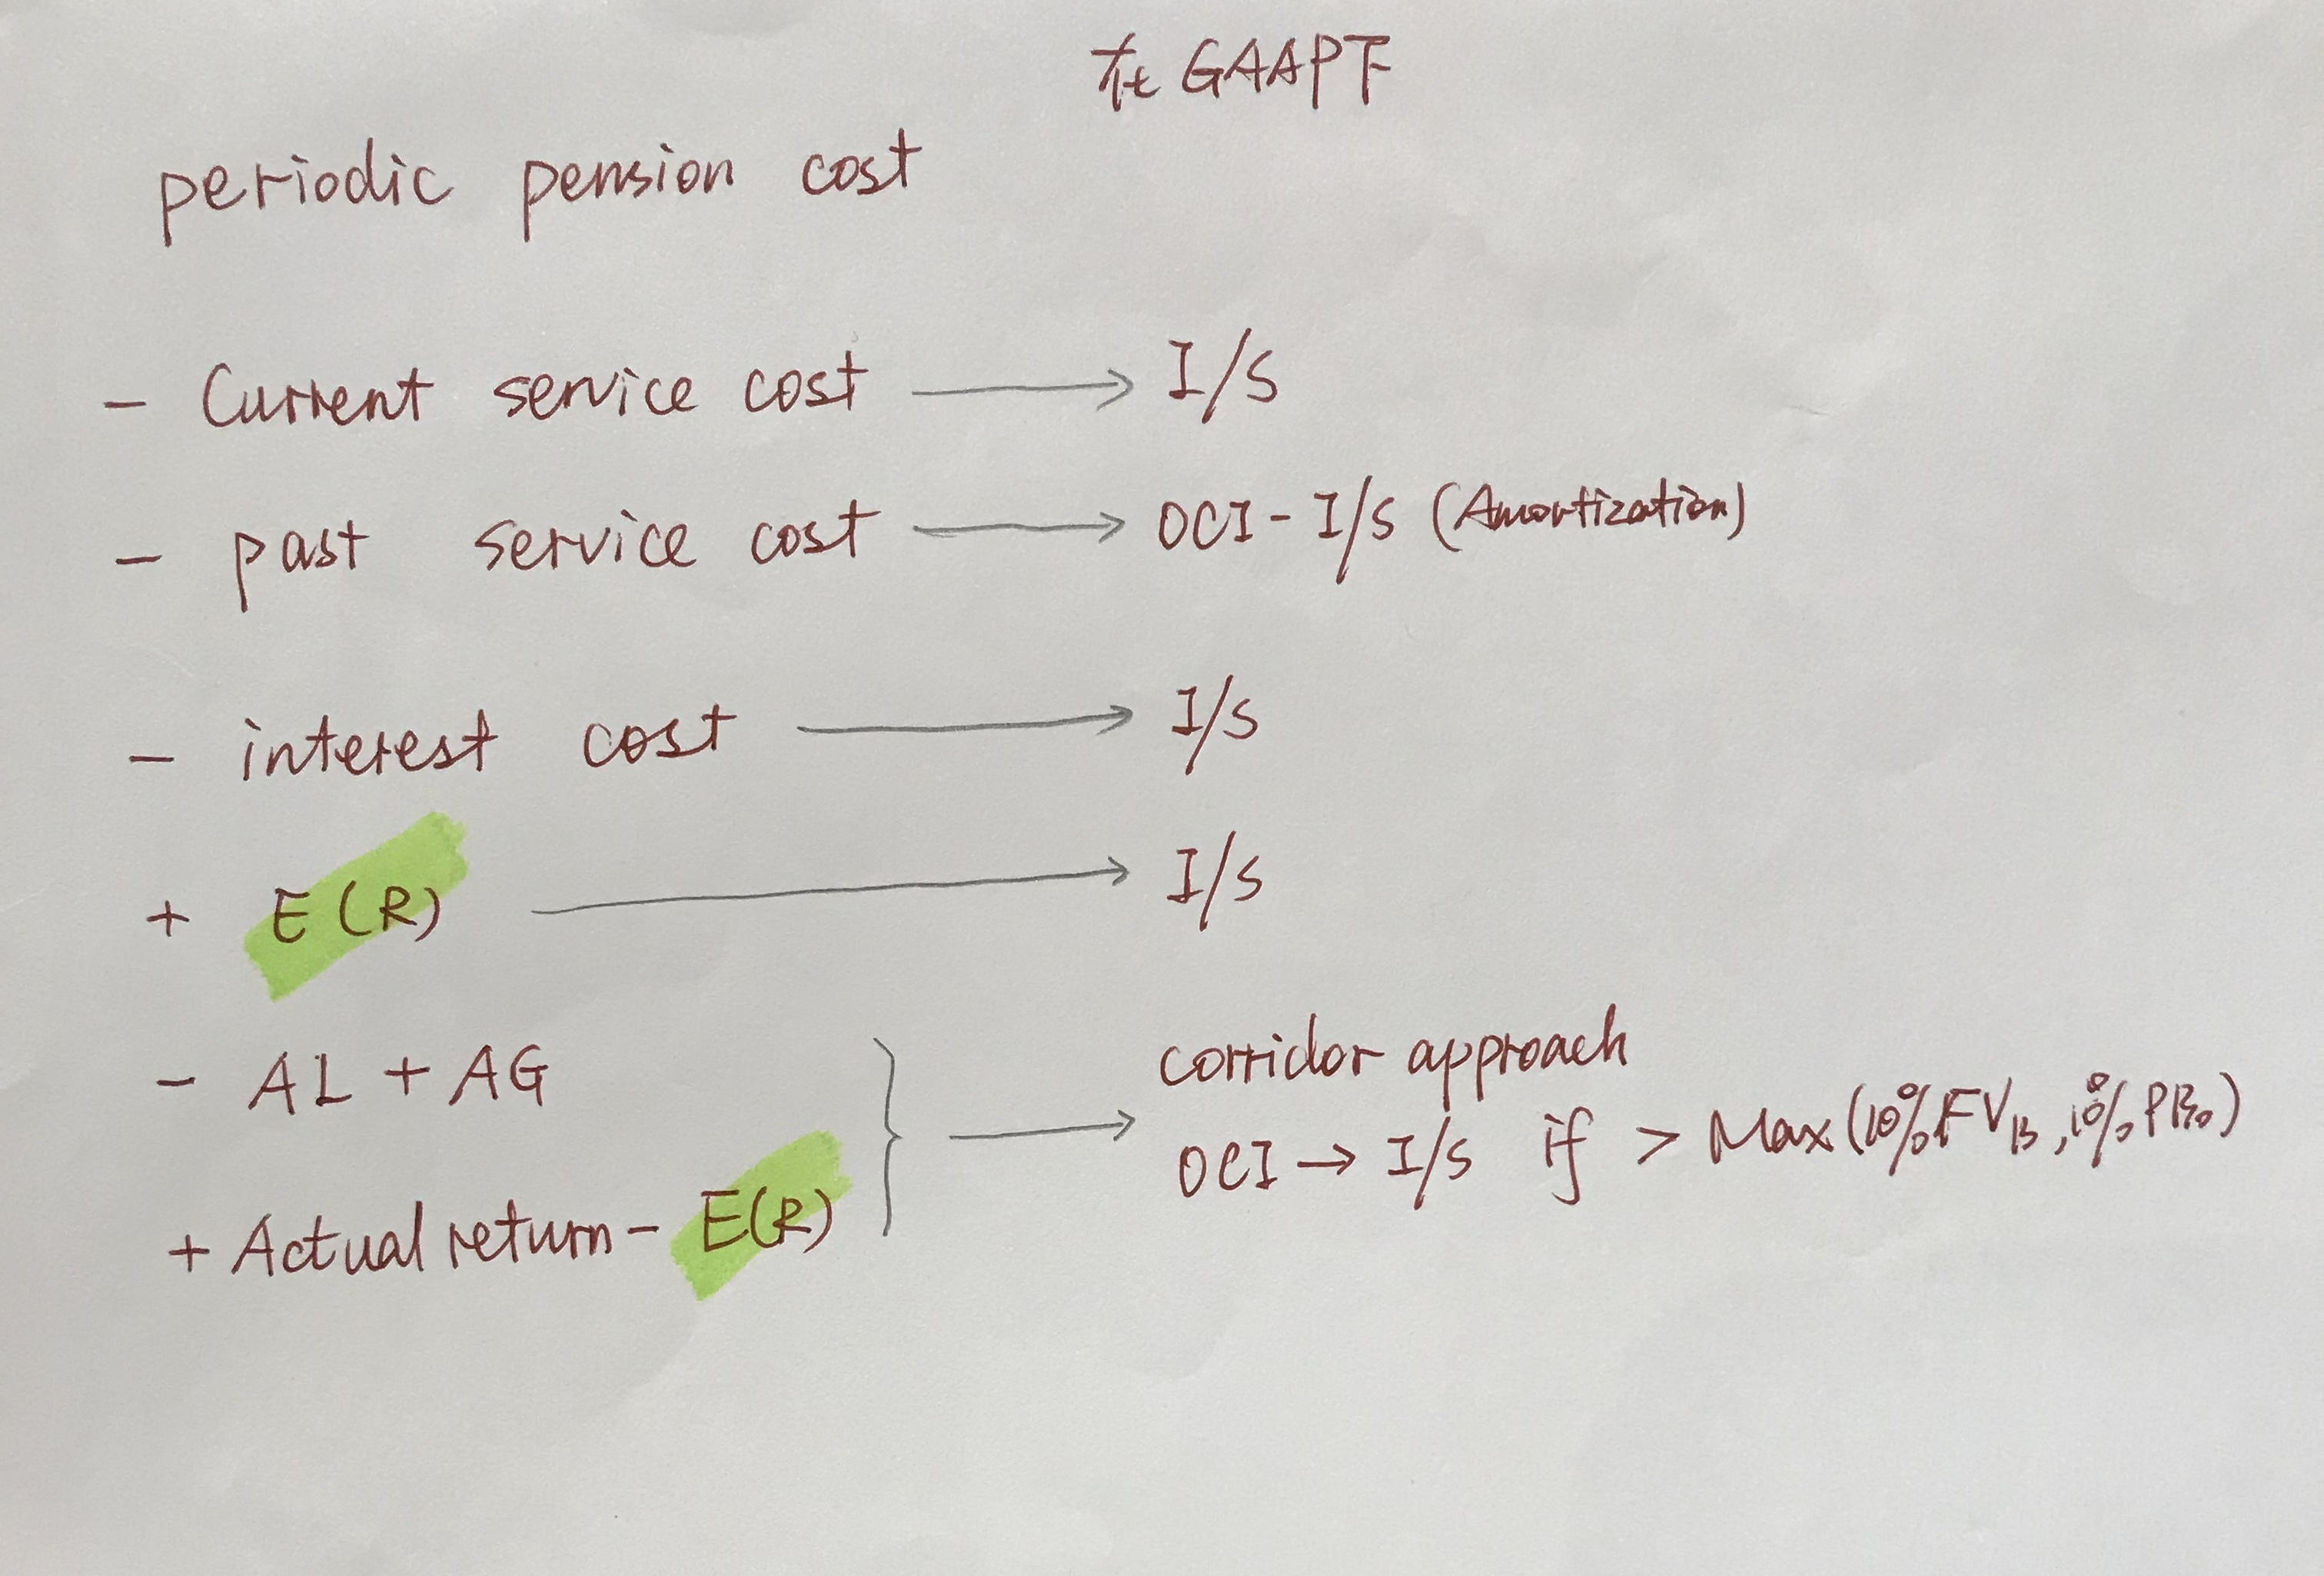 在 GAAP下
periodic pension cost
- Current service cost → I/S
- past service cost → OCI - I/S (Amortization)
- interest cost → I/S
+ E(R) → I/S
- AL + AG
+ Actual return - E(R)
} → corridor approach
OCI → I/S if > Max(10% FV_B, 10% PB₀)